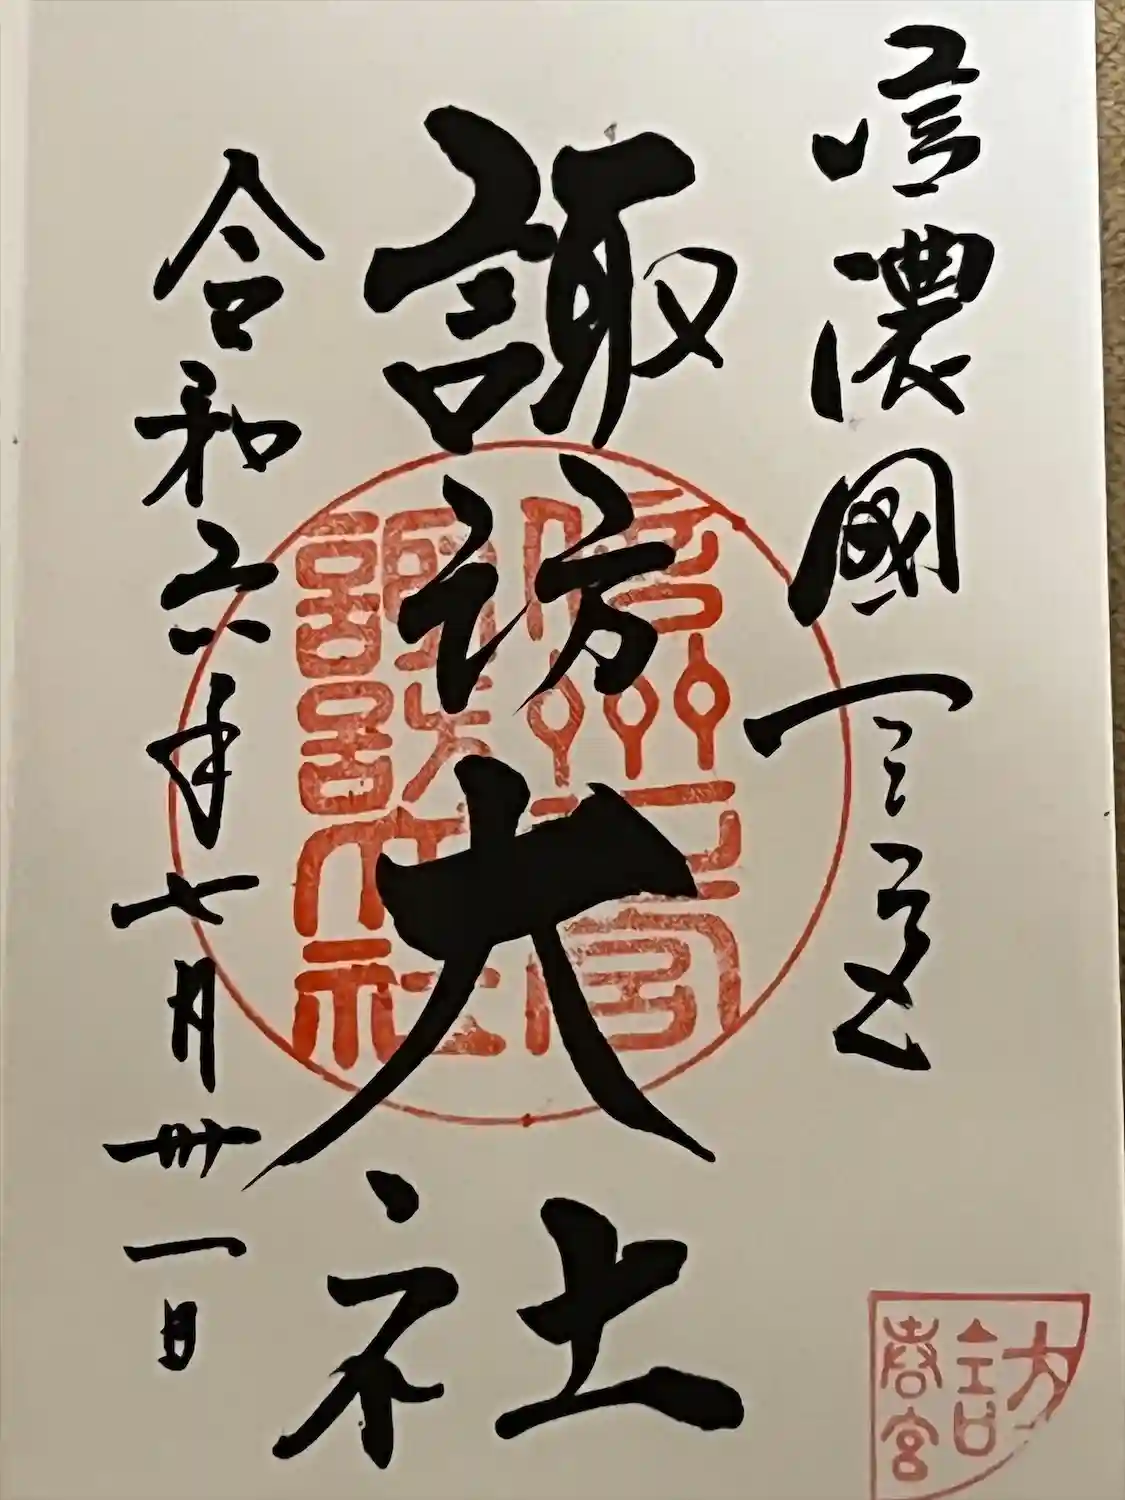 信濃國一之宮
諏訪大社
令和六年七月卅一日
信州一宮
諏訪大社
訪
春宮